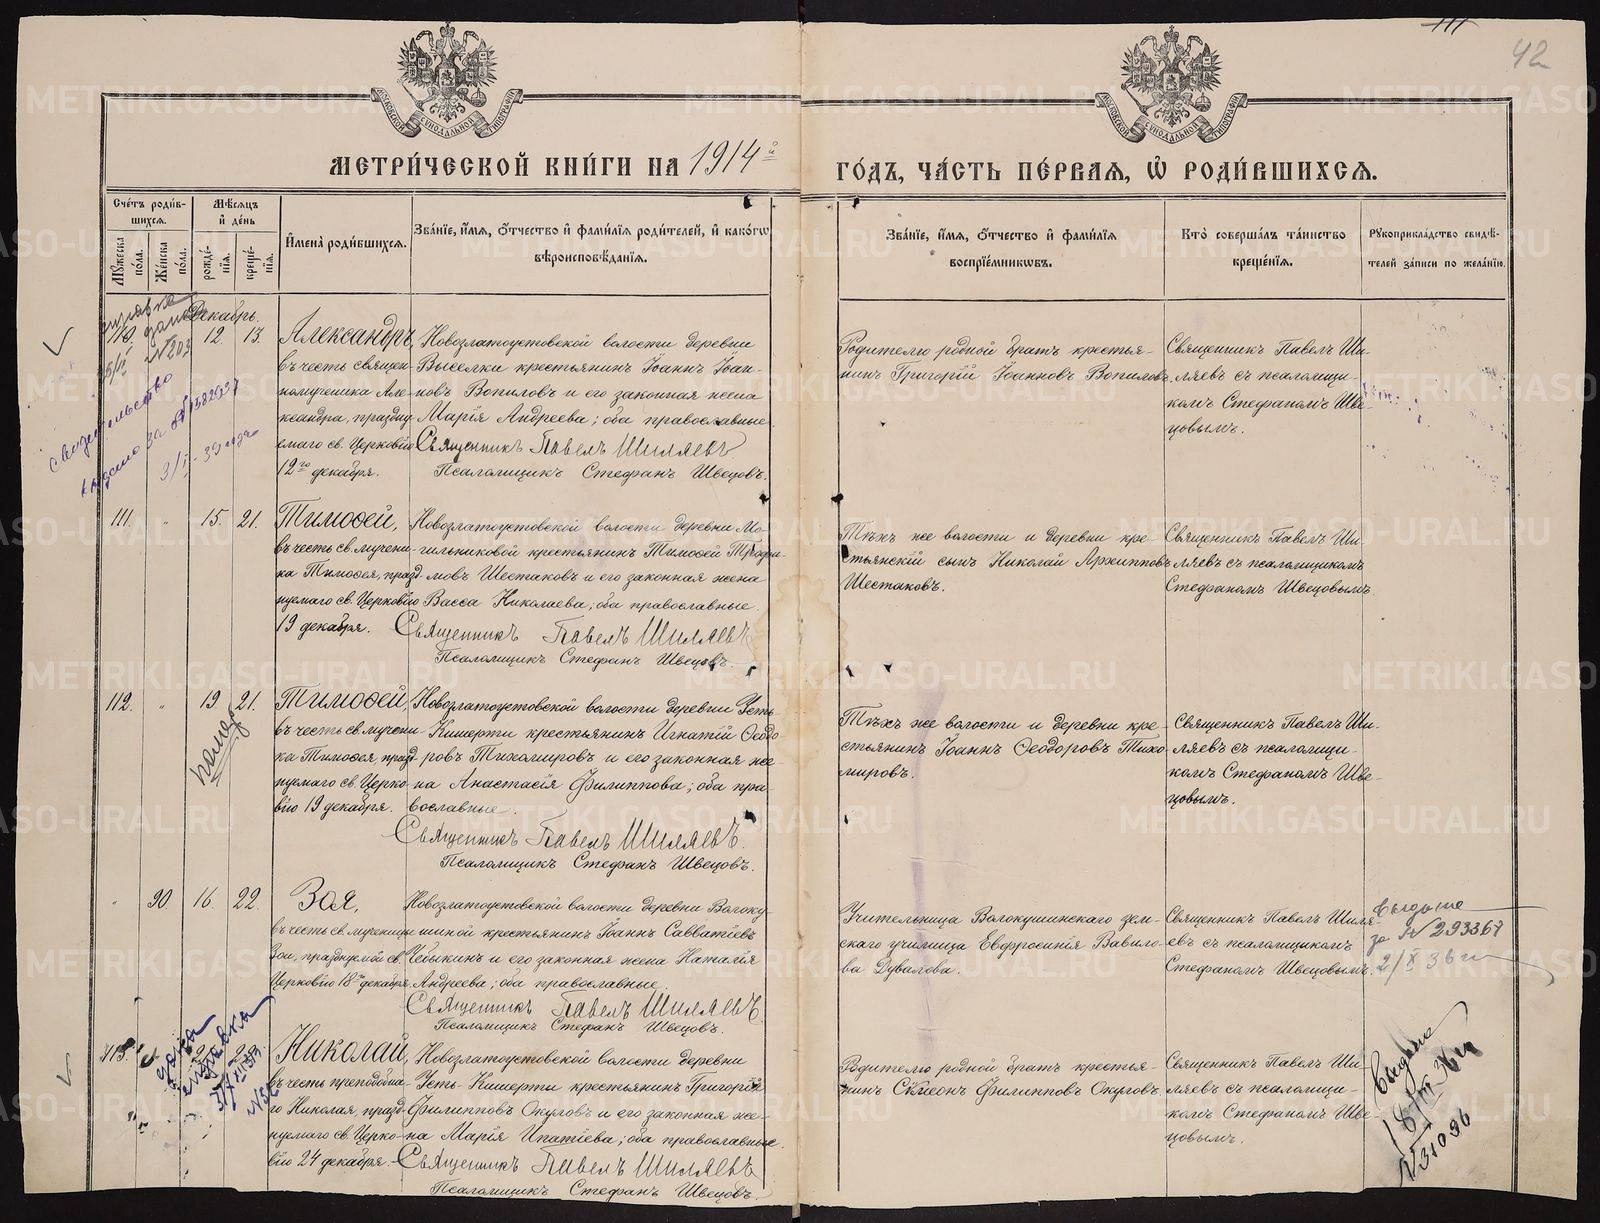 42
МОСКОВСКОЙ СѴНОДАЛЬНОЙ ТИПОГРАФІИ
МОСКОВСКОЙ СѴНОДАЛЬНОЙ ТИПОГРАФІИ
МЕТРИ́ЧЕСКОЙ КНИ́ГИ НА 1914й
ГО́ДЪ, ЧА́СТЬ ПЕ́РВАѦ, Ѡ҆ РОДИ́ВШИХСѦ.
Сче́тъ роди́в-
шихсѧ.
Мꙋ́жеска по́ла.
Же́нска по́ла.
Мѣ́сѧцъ
и҆ де́нь
рожде́-
нїѧ.
креще́-
нїѧ.
И҆мена̀ роди́вшихсѧ.
Зва́нїе, и҆́мѧ, ѻ҆́тчество и҆ фами́лїѧ роди́телей, и҆ како́гѡ
вѣроисповѣ́данїѧ.
Зва́нїе, и҆́мѧ, ѻ҆́тчество и҆ фами́лїѧ
воспрїе́мникѡвъ.
Кто̀ соверша́лъ та́инство
креще́нїѧ.
Рꙋкоприкла́дство свидѣ́-
телей за́писи по жела́нїю.
Декабрь.
справка
дана
№ 203
свидѣтельство
выдано за № 1582027
9/I - 39 года
110. 12. 13.
Александръ,
въ честь священ-
номученика Але-
ксандра, праздну-
емаго св. Церковію
12го декабря.
Новозлатоустовской волости деревни
Выселки крестьянинъ Іоаннъ Іоан-
новъ Вопиловъ и его законная жена
Марія Андреева; оба православные
Священникъ Павелъ Шиляевъ
Псаломщикъ Стефанъ Швецовъ.
Родителю родной братъ крестья-
нинъ Григорій Іоанновъ Вопиловъ.
Священникъ Павелъ Ши-
ляевъ съ псаломщи-
комъ Стефаномъ Шве-
цовымъ.
111. " 15. 21.
Тимоѳей,
въ честь св. мучени-
ка Тимоѳея, празд-
нуемаго св. Церковію
19 декабря.
Новозлатоустовской волости деревни Мо-
гильниковой крестьянинъ Тимоѳей Трофи-
мовъ Шестаковъ и его законная жена
Васса Николаева; оба православные.
Священникъ Павелъ Шиляевъ
Псаломщикъ Стефанъ Швецовъ.
Тѣхъ же волости и деревни кре-
стьянскій сынъ Николай Архипповъ
Шестаковъ.
Священникъ Павелъ Ши-
ляевъ съ псаломщикомъ
Стефаномъ Швецовымъ.
112. " 19 21.
Тимоѳей,
въ честь св. мучени-
ка Тимоѳея, празд-
нуемаго св. Церко-
вію 19 декабря.
Новозлатоустовской волости деревни Усть-
Кишерти крестьянинъ Игнатій Ѳеодо-
ровъ Тихомировъ и его законная же-
на Анастасія Филиппова; оба пра-
вославные.
Священникъ Павелъ Шиляевъ.
Псаломщикъ Стефанъ Швецовъ.
Тѣхъ же волости и деревни кре-
стьянинъ Іоаннъ Ѳеодоровъ Тихо-
мировъ.
Священникъ Павелъ Ши-
ляевъ съ псаломщи-
комъ Стефаномъ Шве-
цовымъ.
" 90. 16. 22.
Зоя,
въ честь св. мученицы
Зои, празднуемой св.
Церковію 18го декабря.
Новозлатоустовской волости деревни Волоку-
шиной крестьянинъ Іоаннъ Савватіевъ
Чебыкинъ и его законная жена Наталія
Андреева; оба православные.
Священникъ Павелъ Шиляевъ.
Псаломщикъ Стефанъ Швецовъ.
Учительница Волокушинскаго зем-
скаго училища Евфросинія Вавило-
ва Дувалова.
Священникъ Павелъ Шиля-
евъ съ псаломщикомъ
Стефаномъ Швецовымъ.
Выдано
за № 293367
2/X 36 г
113.
дана
справка
Николай,
въ честь преподобна-
го Николая, празд-
нуемаго св. Церко-
вію 24 декабря.
Новозлатоустовской волости деревни
Усть-Кишерти крестьянинъ Григорій
Филипповъ Окуловъ и его законная же-
на Марія Ипатіева; оба православные.
Священникъ Павелъ Шиляевъ
Псаломщикъ Стефанъ Швецовъ.
Родителю родной братъ крестья-
нинъ Симеонъ Филипповъ Окуловъ.
Священникъ Павелъ Ши-
ляевъ съ псаломщи-
комъ Стефаномъ Шве-
цовымъ.
Выдано
№ 31096
METRIKI.GASO-URAL.RU